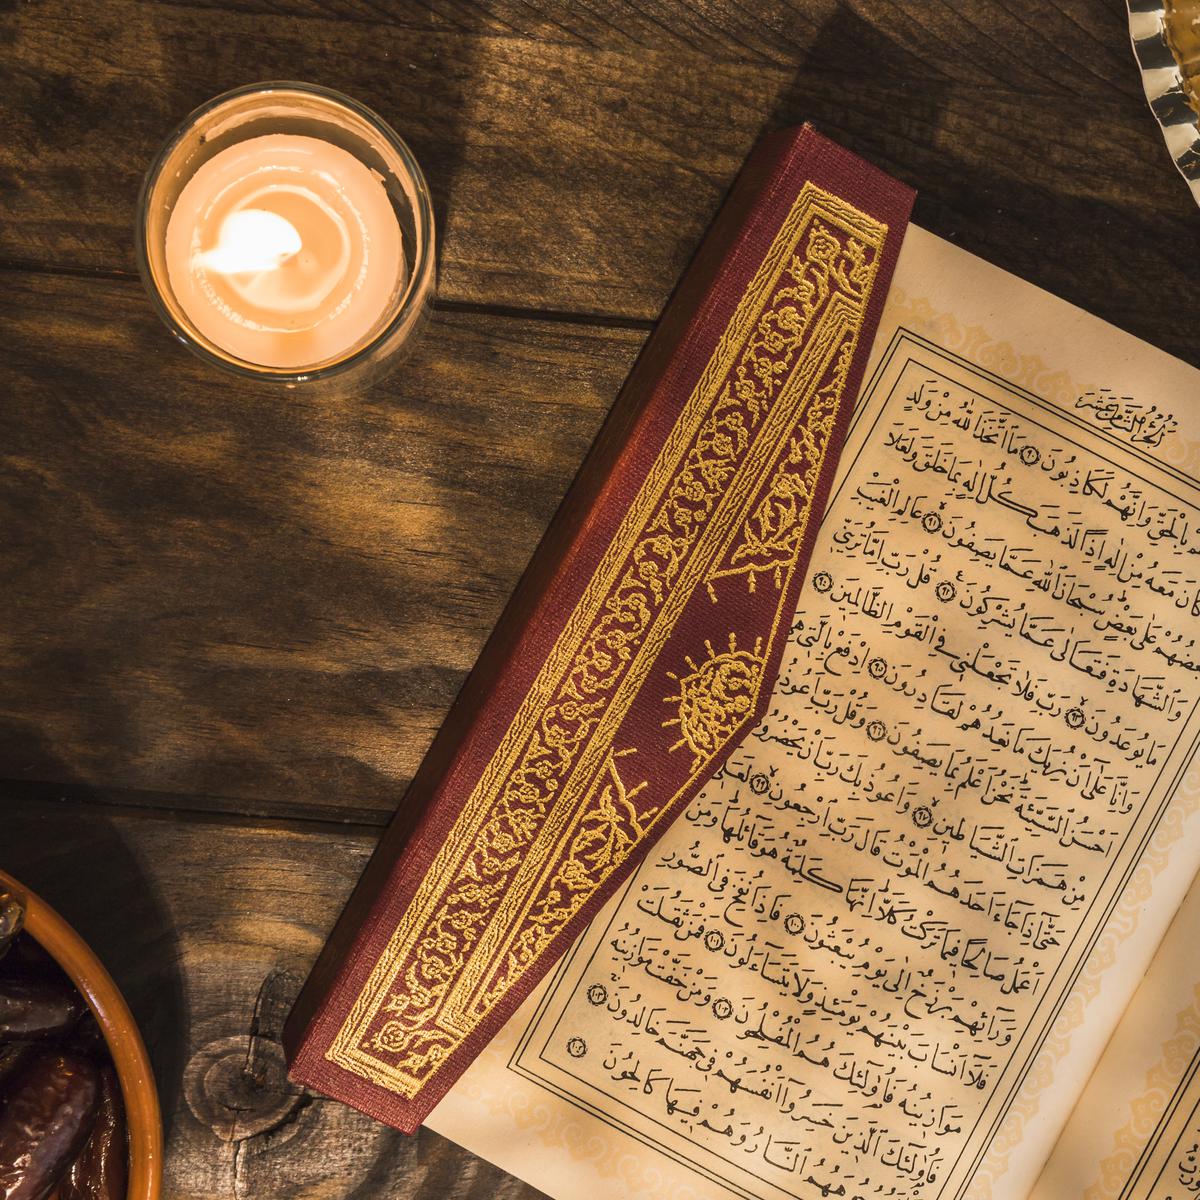 اَلْجُزْءُ الثَّامِنُ عَشَرَ
بِالْحَقِّ وَاِنَّهُمْ لَكَاذِبُونَ ٩٠ مَا اتَّخَذَ اللّٰهُ مِنْ وَلَدٍ
كَانَ مَعَهُ مِنْ اِلٰهٍ اِذًا لَذَهَبَ كُلُّ اِلٰهٍ بِمَا خَلَقَ وَلَعَلَا
بَعْضُهُمْ عَلٰى بَعْضٍ سُبْحَانَ اللّٰهِ عَمَّا يَصِفُونَ ٩١ عَالِمِ الْغَيْبِ
وَالشَّهَادَةِ فَتَعَالٰى عَمَّا يُشْرِكُونَ ٩٢ قُلْ رَبِّ اِمَّا تُرِيَنِّي
مَا يُوعَدُونَ ٩٣ رَبِّ فَلَا تَجْعَلْنِي فِي الْقَوْمِ الظَّالِمِينَ ٩٤
وَاِنَّا عَلٰى اَنْ نُرِيَكَ مَا نَعِدُهُمْ لَقَادِرُونَ ٩٥ اِدْفَعْ بِالَّتِي هِيَ
اَحْسَنُ السَّيِّئَةَ نَحْنُ اَعْلَمُ بِمَا يَصِفُونَ ٩٦ وَقُلْ رَبِّ اَعُوذُ
مِنْ هَمَزَاتِ الشَّيَاطِينِ ٩٧ وَاَعُوذُ بِكَ رَبِّ اَنْ يَحْضُرُونِ
حَتّٰى اِذَا جَاءَ اَحَدَهُمُ الْمَوْتُ قَالَ رَبِّ ارْجِعُونِ ٩٩ لَعَلِّي
اَعْمَلُ صَالِحًا فِيمَا تَرَكْتُ كَلَّا اِنَّهَا كَلِمَةٌ هُوَ قَائِلُهَا وَمِنْ
وَرَائِهِمْ بَرْزَخٌ اِلٰى يَوْمِ يُبْعَثُونَ ١٠٠ فَاِذَا نُفِخَ فِي الصُّورِ
فَلَا اَنْسَابَ بَيْنَهُمْ يَوْمَئِذٍ وَلَا يَتَسَاءَلُونَ ١٠١ فَمَنْ ثَقُلَتْ
مَوَازِينُهُ فَاُولٰئِكَ هُمُ الْمُفْلِحُونَ ١٠٢ وَمَنْ خَفَّتْ مَوَازِينُهُ
فَاُولٰئِكَ الَّذِينَ خَسِرُوا اَنْفُسَهُمْ فِي جَهَنَّمَ خَالِدُونَ ١٠٣
هَهُمُ النَّارُ وَهُمْ فِيهَا كَالِحُونَ ١٠٤